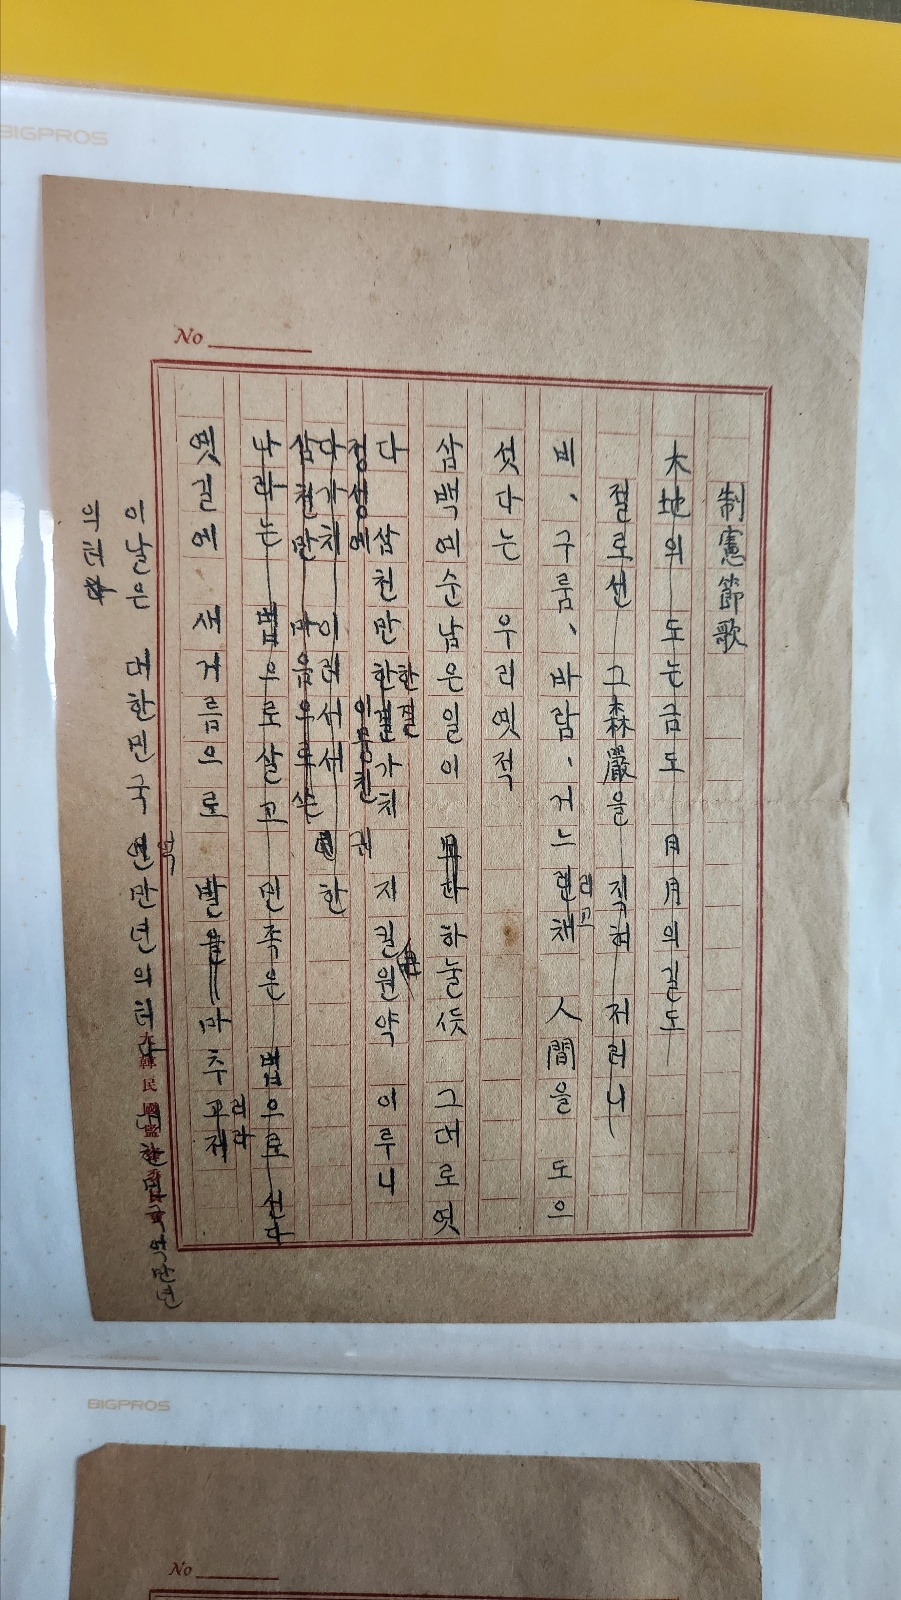 BIGPROS
No
制憲節歌
大地의 도는금도 日月의길도
절로선 그森嚴을 직혀 저러니
비、구룸、바람、거느린채 人間을 도으
리고
섯다는 우리옛적
삼백예순남은일이 하눌뜻 그대로엿
한결
다 삼천만한결가치 지킬원약 이루니
정성에
다가치 이러서서 한
삼천만 마음으로
나라는 법으로살고 민족은 법으로 산다
옛길에 새거름으로 발 마추고저
리라
이날은 대한민국 만년의터
억
의터
억만년
大韓民國監察委員會
BIGPROS
No